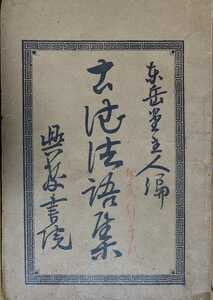 東岳堂主人編
古德法語集
興教書院